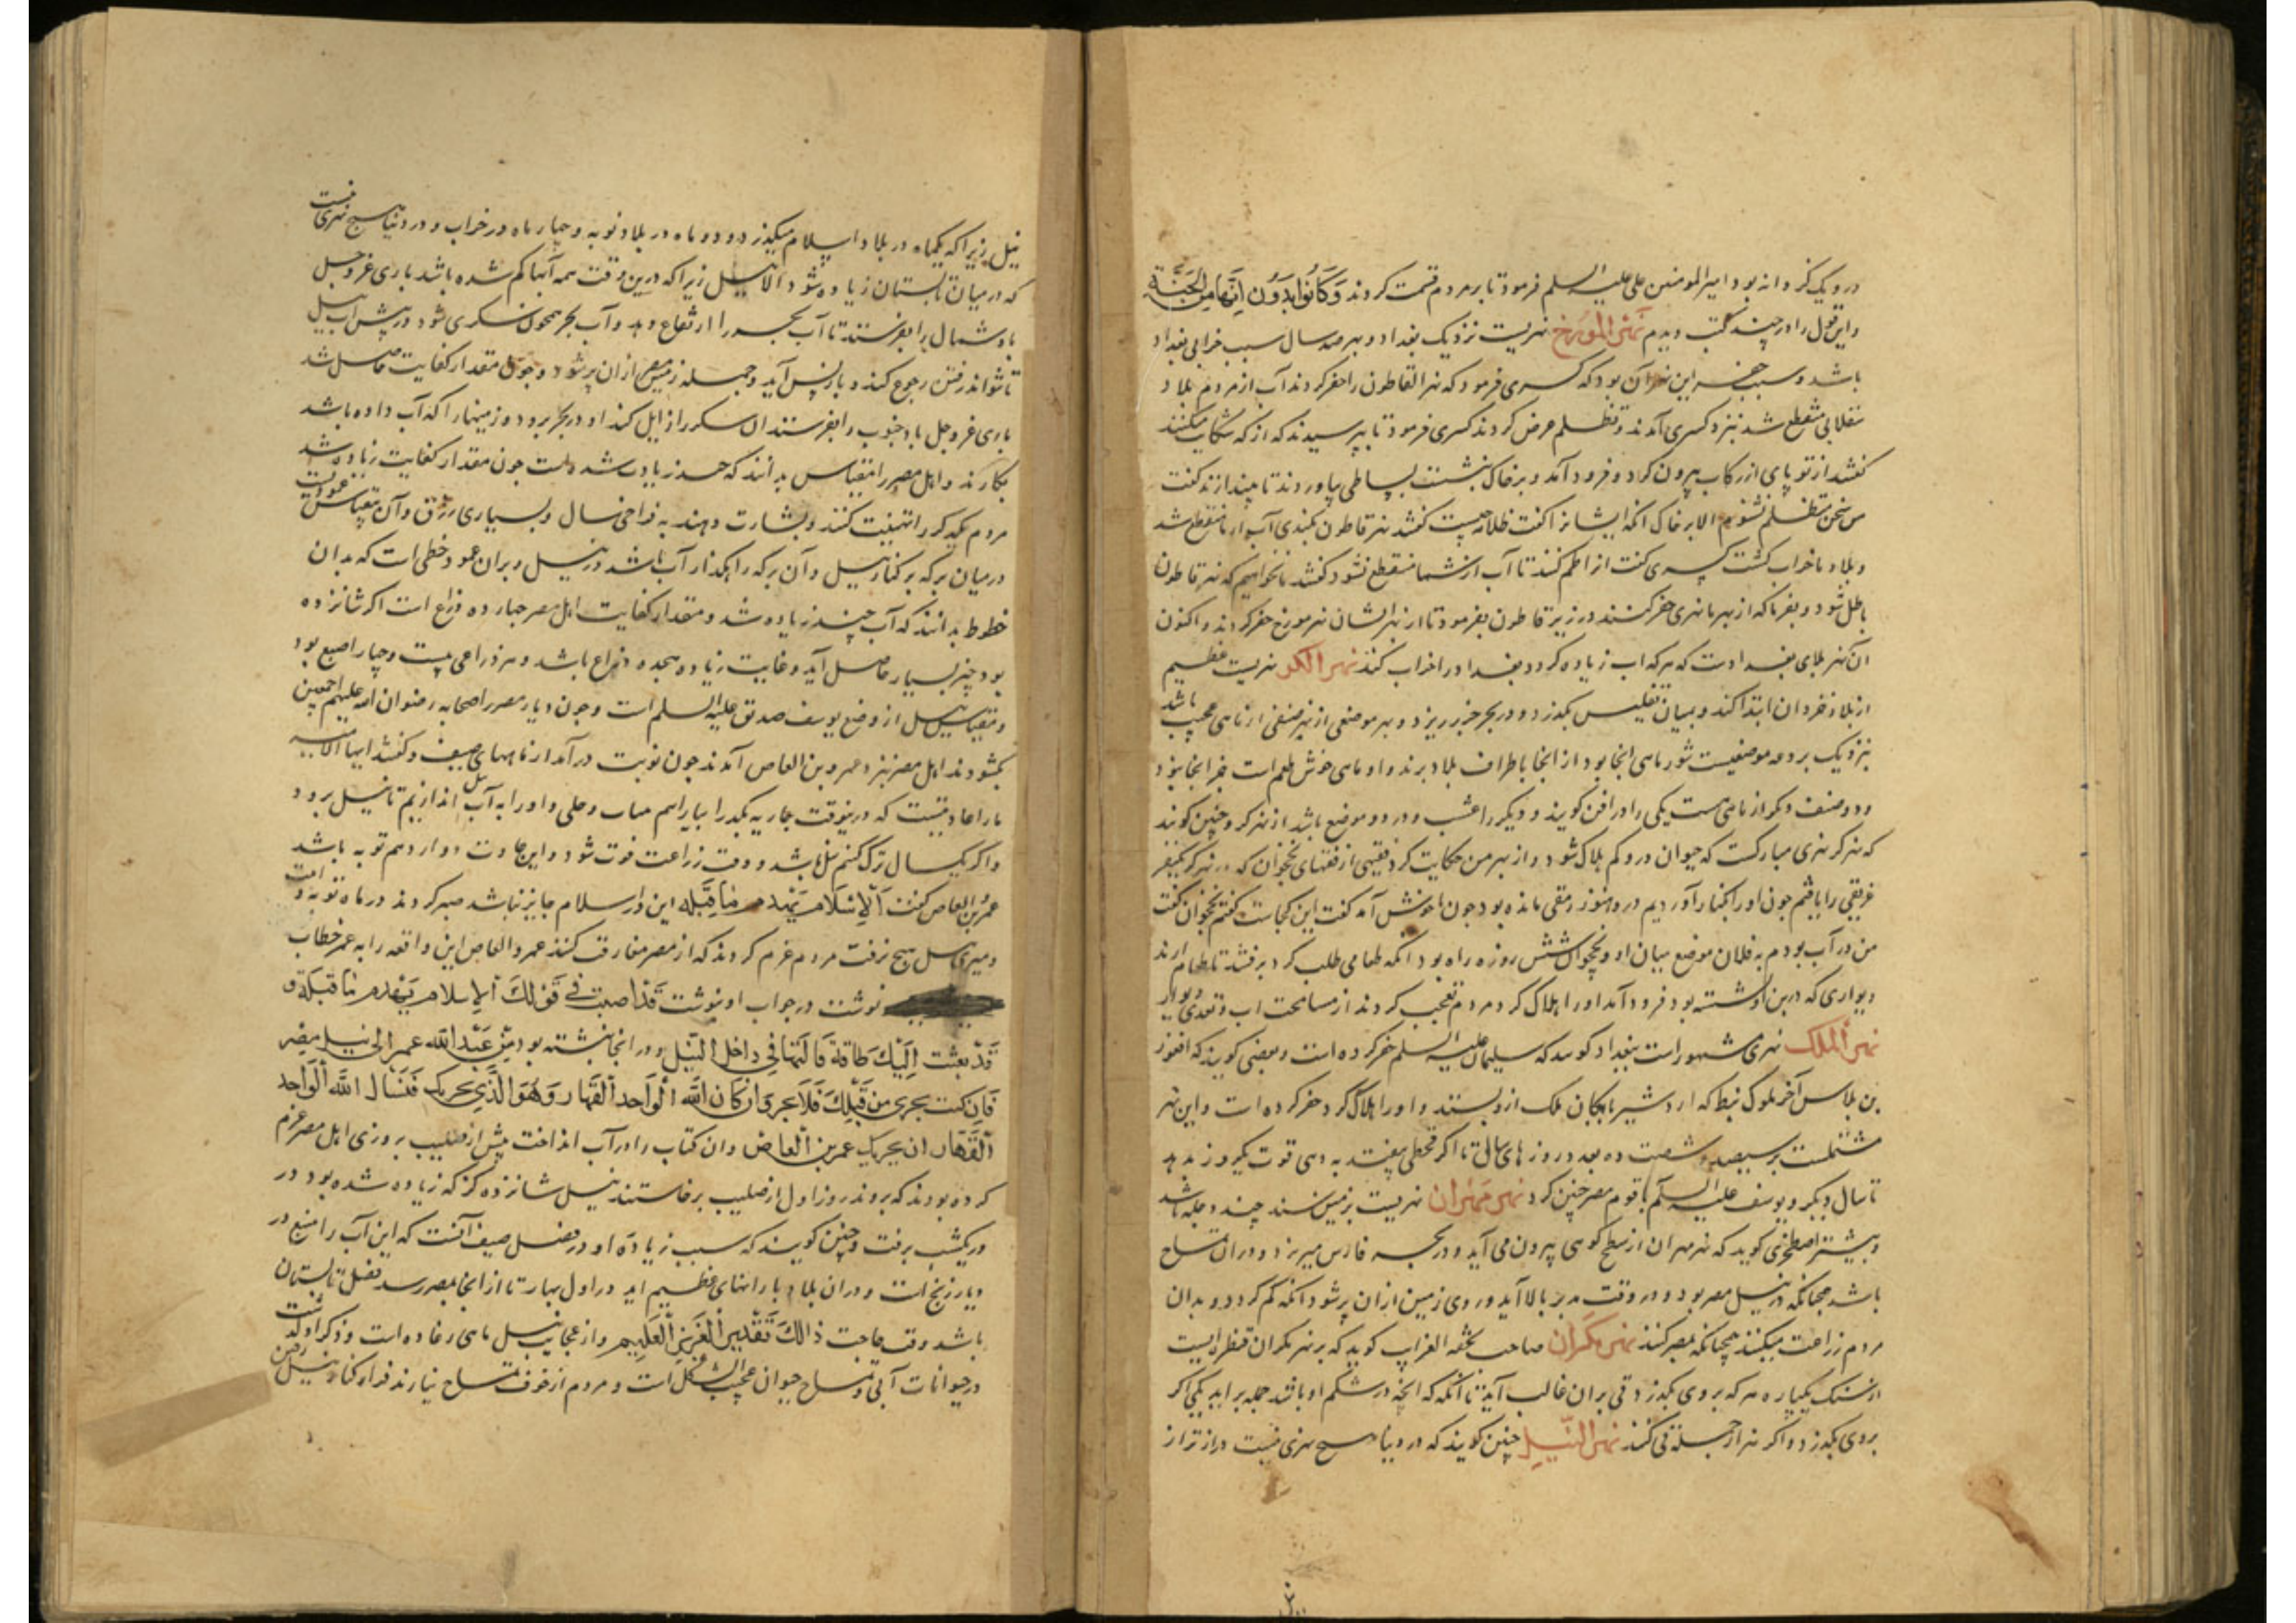 در و یک کر دانه بود امیر المومنین علی علیه السلم فرمود تا بر مردم قسمت کردند وَكَانُوا يَرَوْنَ اَنَّهَا مِنَ الْجَنَّةِ
و این قول را در چند کتب دیدم نَهْر المورخ نهریست نزدیک بغداد و بهر صد سال سبب خرابی بغداد
باشد و سبب حفر این نهر آن بود که کسری فرمود که نهر القاطون را حفر کردند آب از مردم بلاد
منقطع شد بنزد کسری آمدند و تظلم عرض کردند کسری فرمود تا بپرسیدند که از که شکایت میکنند
کفتند از تو پای از رکاب بیرون کرد و فرود آمد و بر خاک بنشست بساطی بیاوردند تا بیندازند کفت
من سخن متظلم نشنوم الا بر خاک انکه ایشانرا کفت ظلامه چیست کفتند نهر قاطون بکندی آب از ما منقطع شد
و بلاد ما خراب کشت کسری کفت از اطم کنند تا آب از شما منقطع نشود کفتند نخواهیم که نهر قاطون
باطل شود و بفرما که از بهر ما نهری حفر کنند در زیر قاطون بفرمود تا از بهر ایشان نهر مورخ حفر کردند و اکنون
آن نهر بلای بغدادست که هر که اب زیاده کردد بغداد را خراب کند نهر الکر نهریست عظیم
از بلاد خزران ابتدا کند و بمیان تفلیس بکذرد و در بحر خزر ریزد و بهر موضعی از نهر صنفی از ماهی عجیب باشد
بنزدیک بردعه موضعیست شور ماهی انجا بود از انجا باطراف بلاد برند و او ماهی خوش طعم است غیر انجا نبود
و دو صنف دیکر از ماهی هست یکی را دراقن کویند و دیکر را عشب و در دو موضع باشد از نهر کر و چنین کویند
که نهر کر نهری مبارکست که حیوان درو کم هلاک شود و از بهر من حکایت کرد فقیهی از فقهای نخجوان که در نهر کر بکیفر
غریقی را یافتم چون او را بکنار آوردیم در و هنوز رمقی مانده بود چون باهوش آمد کفت این کجاست کفتم نخجوان کفت
من در آب بودم به فلان موضع میان او و نخجوان شش روزه راه بود انکه طعامی طلب کرد برفتند تا طعام ارند
دیواری که در بن او نشسته بود فرود آمد او را هلاک کرد مردم تعجب کردند از مسامحت اب و تعدی دیوار
نهر اَلملك نهری مشهور است ببغداد کویند که سلیمان علیه السلم حفر کرده است و بعضی کویند که افغور
بن بلاس آخر ملوک نبط که اردشیر بابکان ملک ازو بستد و او را هلاک کرد حفر کرده است و این نهر
مشتملست بر سیصد و شصت ده بعدد روزهای سال تا اکر قحطی بیفتد به دهی قوت یکروز بدهد
تا سال دیکر و یوسف علیه السلم با قوم مصر چنین کرد نهر مهران نهریست بزمین سند چند دجله باشد
و بیشتر اصطخری کوید که نهر مهران از سطح کوهی بیرون می آید و در بحر فارس میریزد و در آن تمساح
باشد چنانکه در نیل مصر بود و در وقت مد بر بالا آید و روی زمین از ان پر شود انکه کم کردد و بدان
مردم زراعت میکنند همچنانکه بمصر کنند نهر مکران صاحب تحفه الغراب کوید که بر نهر مکران قنطره ایست
از سنک یکپاره هر که بر وی بکذرد قی بر ان غالب آید تا انکه که انچه در شکم او باشد جمله بر اید یکی اکر
بر وی بکذرد و اکر نه از جمله قی کنند نهر النّیل چنین کویند که در دنیا هیچ نهری نیست درازتر از
نیل زیرا که یکماه در بلاد اسلام میکذرد و دو ماه در بلاد نوبه و چهار ماه در خراب و در دنیا هیچ نهری نیست
که در میان تابستان زیاده شود الا نیل زیرا که درین وقت همه آبها کم شده باشد باری عز و جل
باد شمال را بفرستد تا آب بحر را ارتفاع دهد و آب بحر همچون سکری شود در پیش اب نیل
تا نتواند رفتن رجوع کند و باز پس آید و جمله زمین مصر از ان پر شود و چون مقدار کفایت حاصل شد
باری عز و جل باد جنوب را بفرستد ان سکر را زایل کند او در بحر برود و زمینها را که آب داده باشد
بکارند و اهل مصر را مقیاس بدانند که چند زیادت شده است چون مقدار کفایت زیاده شد
مردم یکدیکر را تهنیت کنند و بشارت دهند به فراخی سال و بسیاری رزق و آن مقیاس عمودیست
در میان برکه بر کنار نیل و آن برکه را رهکذار آب باشد در نیل و بران عمود خطی است که بدان
خطوط بدانند که آب چند زیاده شد و مقدار کفایت اهل مصر چهارده ذراع است اکر شانزده
بود چیز بسیار حاصل آید و غایت زیاده هجده ذراع باشد و هر ذراعی بیست و چهار اصبع بود
و مقیاس نیل از وضع یوسف صدیق علیه السلم است و چون دیار مصر را صحابه رضوان الله علیهم اجمعین
بکشودند اهل مصر بنزد عمرو بن العاص آمدند چون نوبت درآمد از ماههای صیف و کفتند ایها الامیر
ما را عادتیست که درینوقت جاریه بکر را بیاراییم بثیاب و حلی و او را به آب نیل اندازیم تا نیل برود
و اکر یکسال ترک کنیم نیل باشد و وقت زراعت فوت شود و این عادت دوازدهم توبه باشد
عمرو بن العاص کفت اَلْاِسْلَام یهدم مَا قَبْلَه این در اسلام جایز نباشد صبر کردند در ماه توبه و امت
و میری نیل هیچ نرفت مردم عزم کردند که از مصر مفارقت کنند عمرو العاص این واقعه را به عمر خطاب
نوشت در جواب او بنوشت قَدْ اصبت فی قَوْلِكَ اَلاِسلام یَهْدم مَا قَبْلَهُ و
قَدْ بعثت اِلَیْكَ بطاقة فَالقها فِی داخل النّیل و در انجا نبشته بود مِنْ عَبْدِ اللّه عمر الی نیل مصر
فَاِن كنت تجری مِنْ قِبَلِكَ فَلَا تجر وَ اِن كَانَ اللّه اَلْوَاحد اَلْقَهَار وَ هُوَ الَّذِی یجریك فَنَسْال اللّه اَلْوَاحد
اَلْقَهَار ان یجریك عمر بن اَلعاص و ان کتاب را در آب انداخت پیش از صلیب بروزی اهل مصر عزم
کرده بودند که بروند روز اول از صلیب برخاستند نیل شانزده کز که زیاده شده بود در
در یکشب برفت و چنین کویند که سبب زیاده او در فصل صیف آنست که این آب را منبع در
دیار زنج است و در ان بلاد بارانهای عظیم اید در اول بهار تا از انجا بمصر رسد فصل تابستان
باشد وقت حاجت ذَالِكَ تَقْدِیرُ اَلْعَزِیزِ اَلْعَلِیمِ و از عجایب نیل ماهی رعاده است و ذکر او کذشت
در حیوانات آبی و تمساح حیوان عجیب الشکل است و مردم از خوف تمساح نیارند فراز کنار نیل رفتن